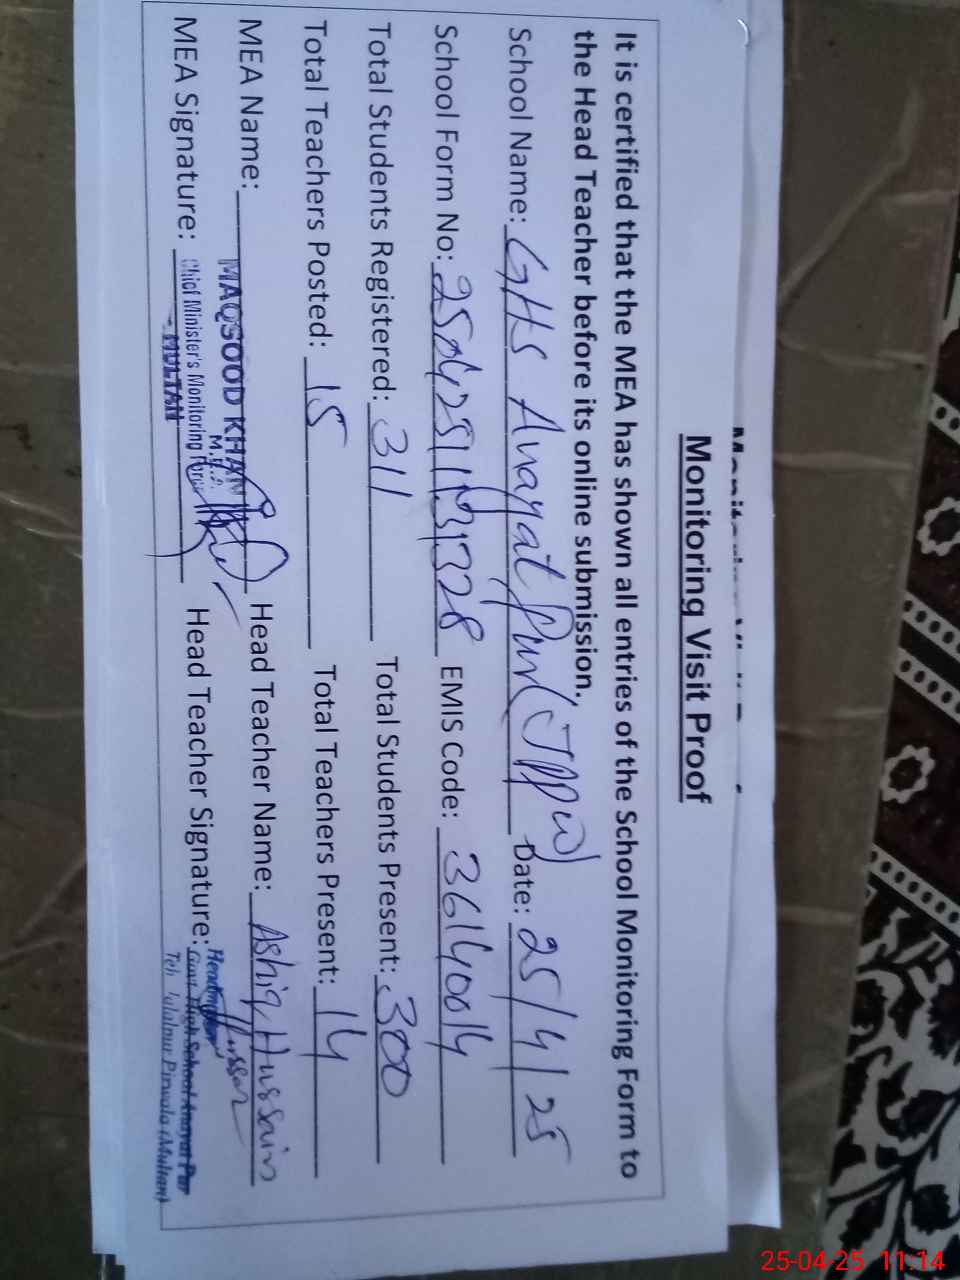 Monitoring Visit Proof
It is certified that the MEA has shown all entries of the School Monitoring Form to
the Head Teacher before its online submission.
School Name: GHS Anayat Pur (JPPW) Date: 25/4/25
School Form No: EMIS Code: 36140014
Total Students Registered: 311 Total Students Present: 300
Total Teachers Posted: 15 Total Teachers Present: 14
MEA Name: MAQSOOD KHAN Head Teacher Name: Ashiq Hussain
M.E.A
MEA Signature: Chief Minister's Monitoring Force Head Teacher Signature: Headmaster
- MULTAN Govt. High School Anayat Pur
Teh. Jalalpur Pirwala (Multan)
25-04-25 11:14